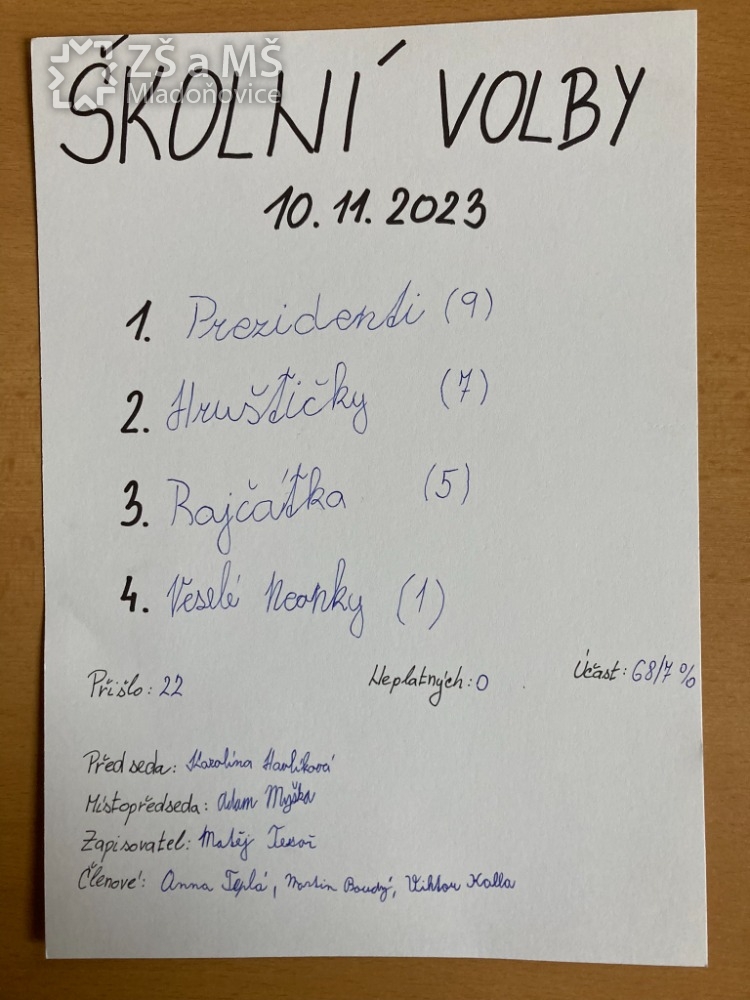 ZŠ a MŠ
Mladoňovice
ŠKOLNÍ VOLBY
10.11.2023
1. Prezidenti (9)
2. Hruštičky (7)
3. Rajčátka (5)
4. Veselé neonky (1)
Přišlo: 22 Neplatných: 0 Účast: 68/7 %
Předseda: Karolína Havlíková
Místopředseda: Adam Myška
Zapisovatel: Matěj Tesař
Členové: Anna Teplá, Martin Boudý, Viktor Kalla